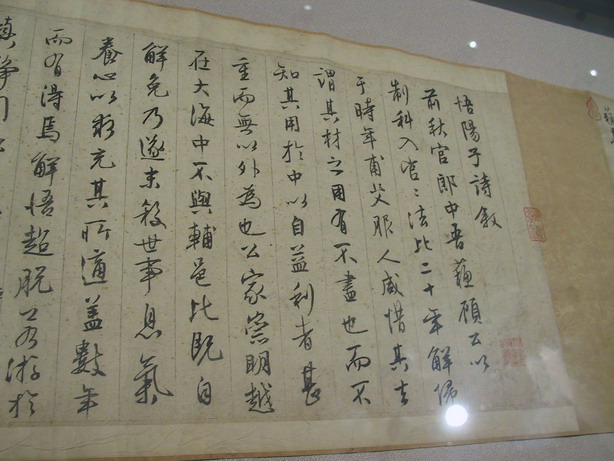 悟陽子詩敘
前秋官郎中吾蘓顧公以
制科入官二法比二十年解佩
于時年甫艾服人咸惜其去
謂其材之用有不盡也而不
知其用於中以自益利者甚
重而無以外為也公家崇明越
在大海中不與輔邑比既自
解免乃遂末殺世事息氣
養心以求充其所適蓋數年
而有得焉解悟超脫若游於